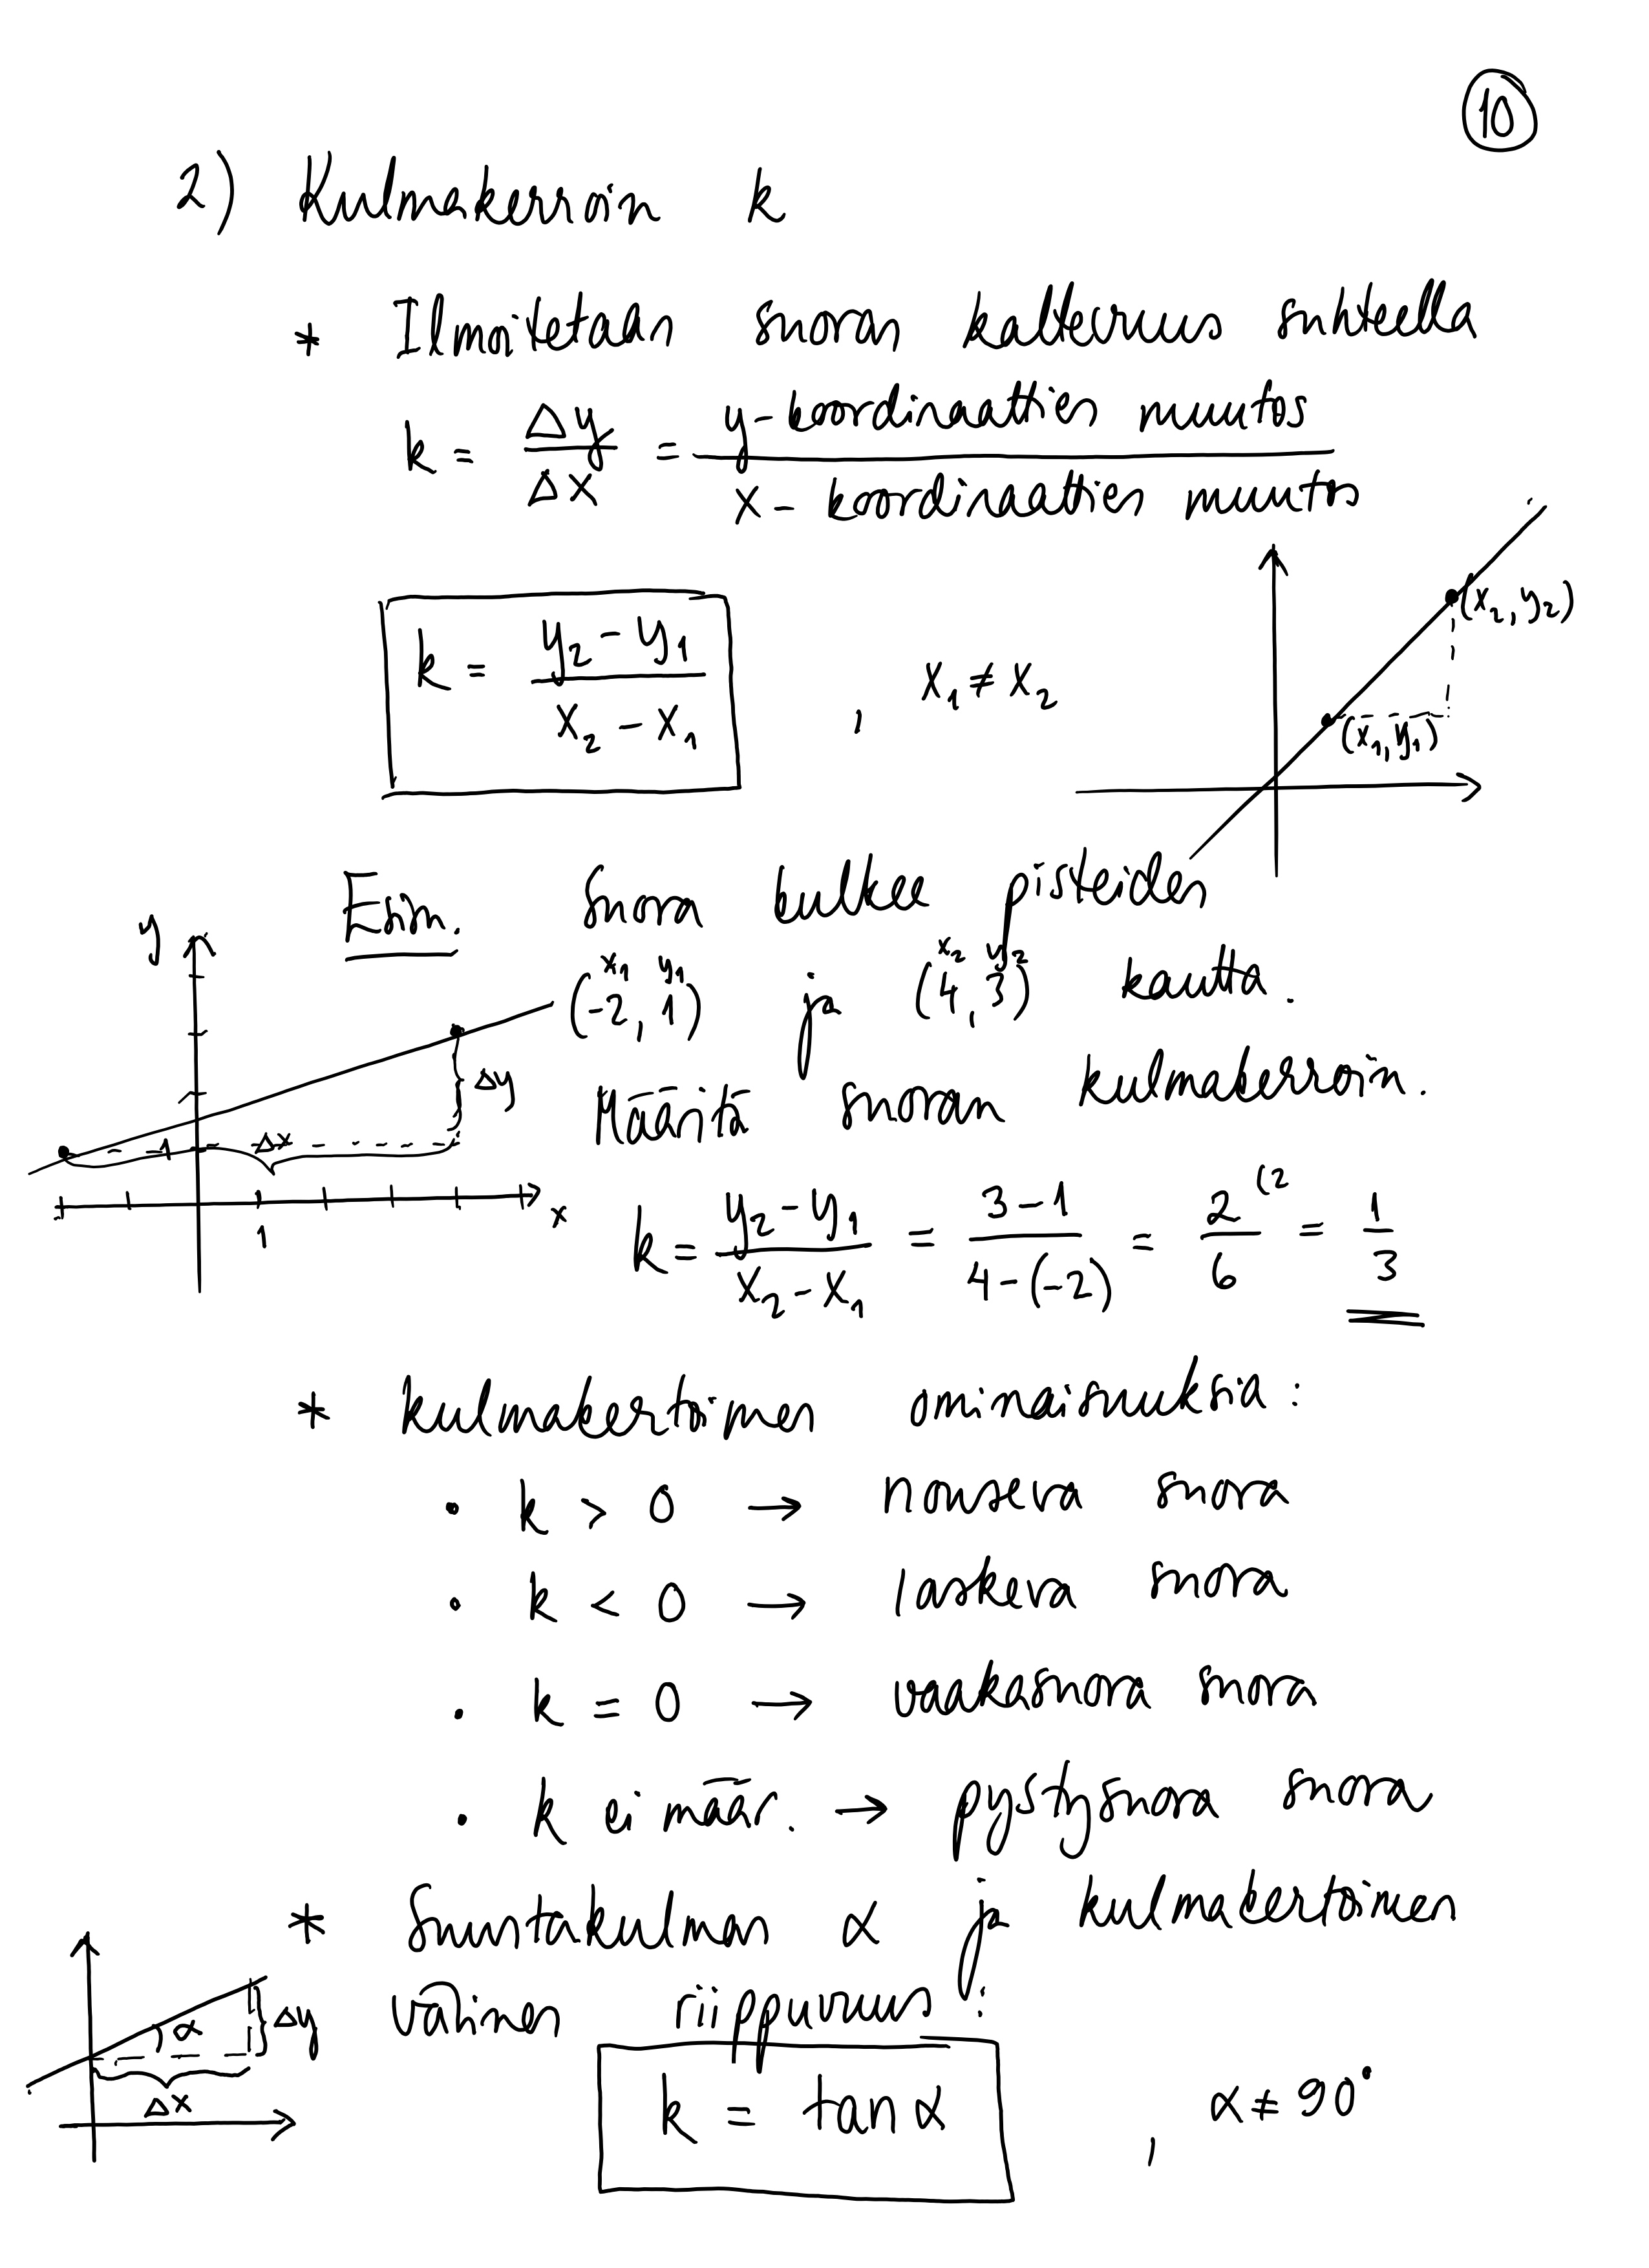 10
2) Kulmakerroin k
* Ilmoitetaan suoran kaltevuus suhteella
k = Δy/Δx = y-koordinaattien muutos / x-koordinaattien muutos
k = (y₂ - y₁)/(x₂ - x₁) , x₁ ≠ x₂
(x₂, y₂)
(x₁, y₁)
Esim. Suora kulkee pisteiden
x₁ y₁ x₂ y₂
(-2, 1) ja (4, 3) kautta.
Määritä suoran kulmakerroin.
y
Δy
1 Δx
1
x
k = (y₂ - y₁)/(x₂ - x₁) = (3 - 1)/(4 - (-2)) = 2/6 (2 = 1/3
* kulmakertoimen ominaisuuksia:
• k > 0 → nouseva suora
• k < 0 → laskeva suora
• k = 0 → vaakasuora suora
• k ei määr. → pystysuora suora
* Suuntakulman α ja kulmakertoimen
välinen riippuvuus:
α
Δy
Δx
k = tan α , α ≠ 90°